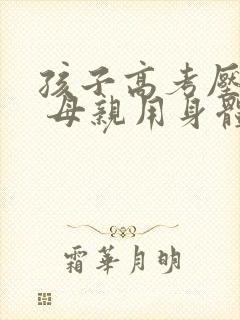 孩子高考壓
母親用身體
霜華月明